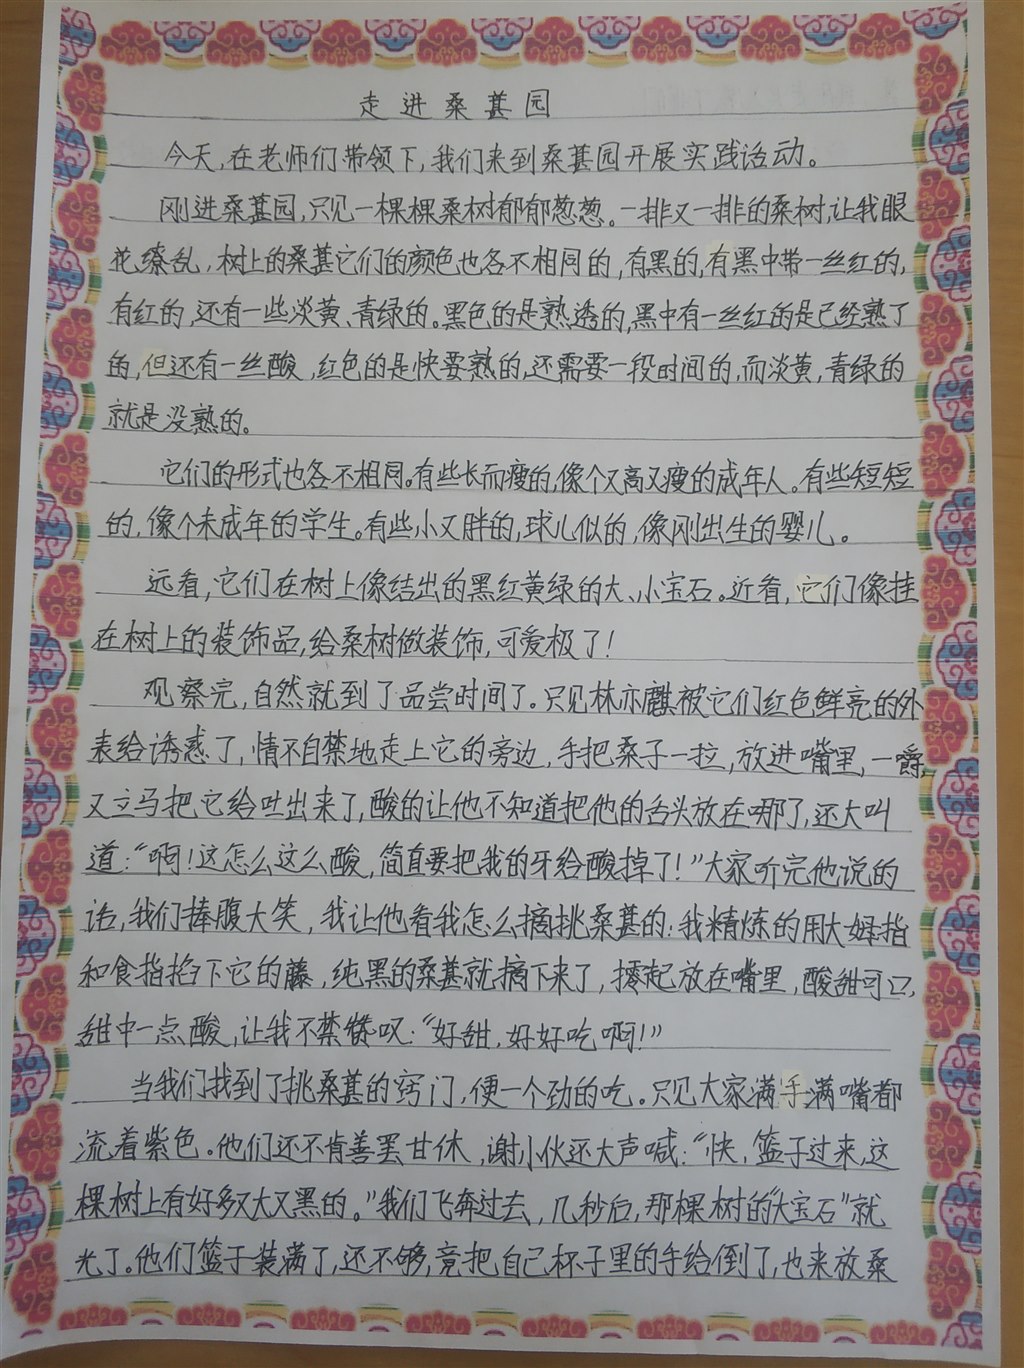 走进桑葚园
今天,在老师们带领下,我们来到桑葚园开展实践活动。
刚进桑葚园,只见一棵棵桑树郁郁葱葱。一排又一排的桑树,让我眼
花缭乱,树上的桑葚它们的颜色也各不相同的,有黑的,有黑中带一丝红的,
有红的,还有一些淡黄、青绿的。黑色的是熟透的,黑中有一丝红的是已经熟了
的,但还有一丝酸,红色的是快要熟的,还需要一段时间的,而淡黄,青绿的
就是没熟的。
它们的形式也各不相同。有些长而瘦的,像个又高又瘦的成年人。有些短短
的,像个未成年的学生。有些小又胖的,球儿似的,像刚出生的婴儿。
远看,它们在树上像结出的黑红黄绿的大、小宝石。近看,它们像挂
在树上的装饰品,给桑树做装饰,可爱极了!
观察完,自然就到了品尝时间了。只见林亦麒被它们红色鲜亮的外
表给诱惑了,情不自禁地走上它的旁边,手把桑子一拉,放进嘴里,一嚼,
又立马把它给吐出来了,酸的让他不知道把他的舌头放在哪了,还大叫
道:“啊!这怎么这么酸,简直要把我的牙给酸掉了!”大家听完他说的
话,我们捧腹大笑,我让他看我怎么摘挑桑葚的:我精炼的用大姆指
和食指掐下它的藤,纯黑的桑葚就摘下来了,攥起放在嘴里,酸甜可口,
甜中一点酸,让我不禁赞叹:“好甜,好好吃啊!”
当我们找到了挑桑葚的窍门,便一个劲的吃。只见大家满手满嘴都
流着紫色。他们还不肯善罢甘休,谢小伙还大声喊:“快,篮子过来,这
棵树上有好多又大又黑的。”我们飞奔过去,几秒后,那棵树的“大宝石”就
光了。他们篮子装满了,还不够,竟把自己杯子里的手给倒了,也来放桑